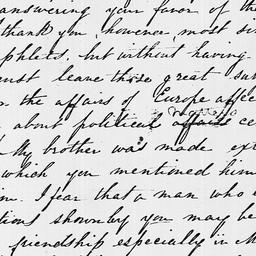 answering your favor of the
thank you, however most sin
phlets. but without having
must leave those great sub
n the affairs of Europe affec
about political affairs ce
My brother was made ext
which you mentioned him
in. I fear that a man who
tions shown by you may be
friendship especially in M